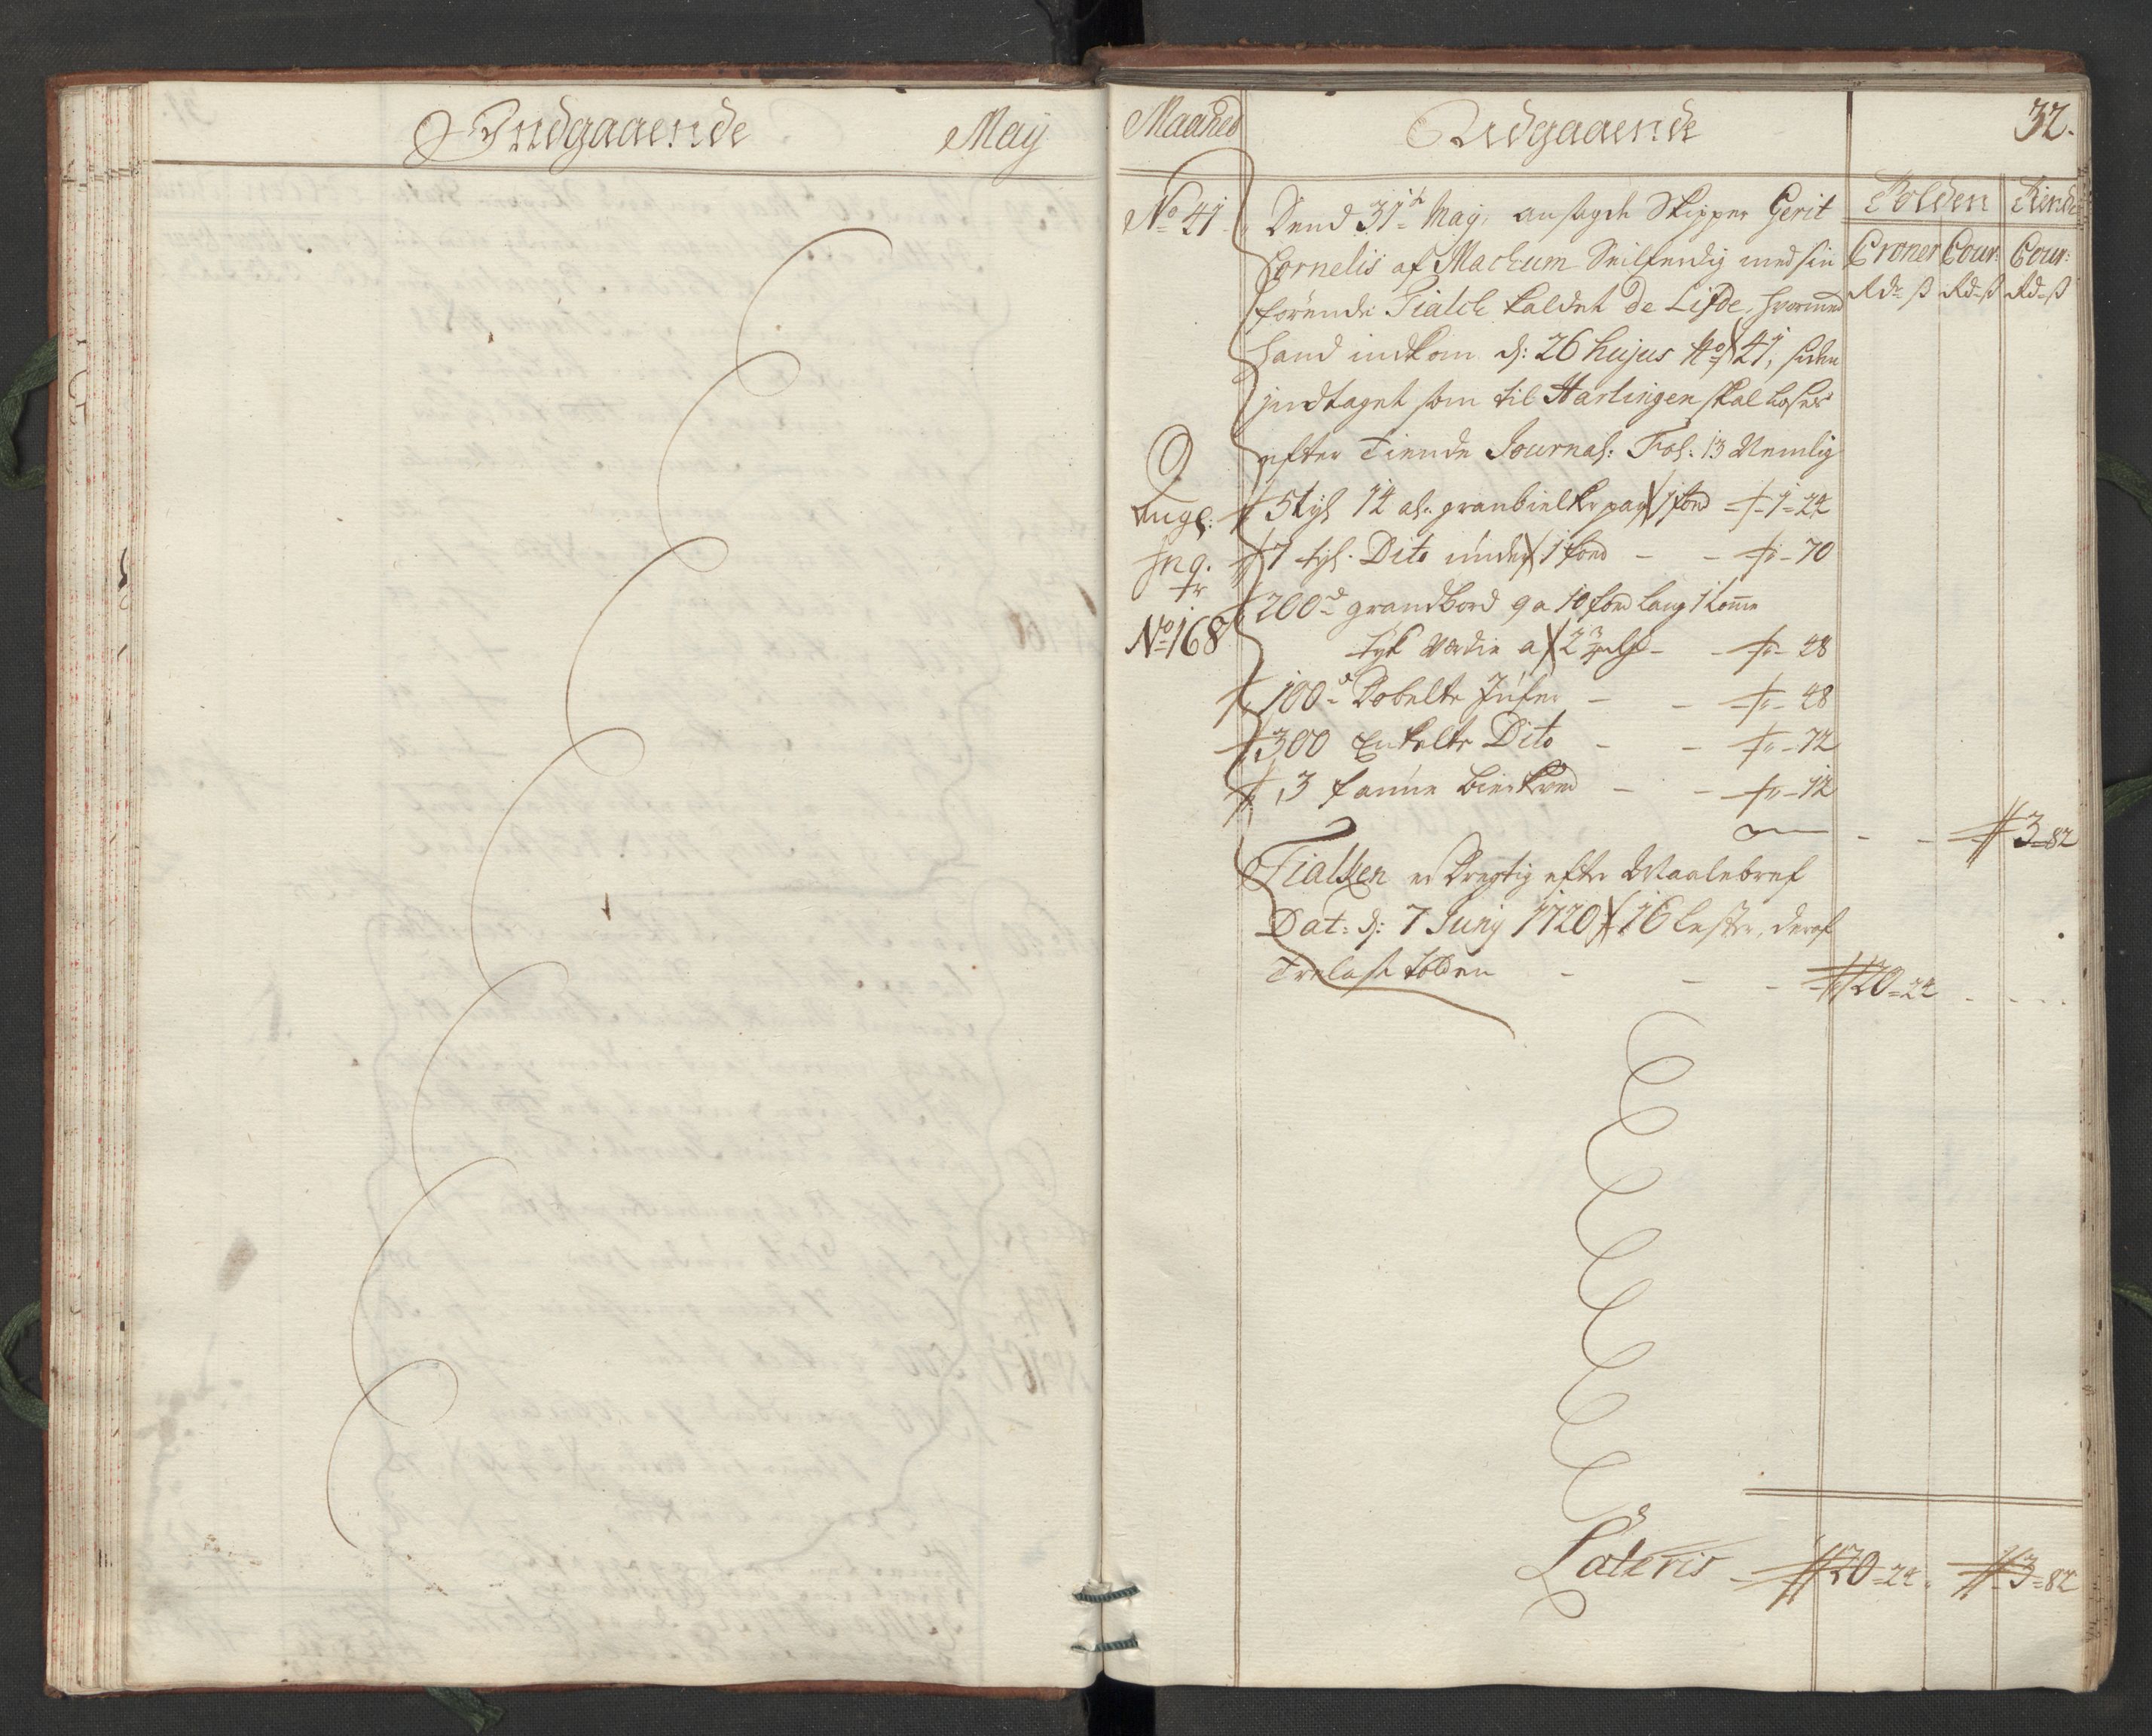 Indgaaende May
Maaned Udgaaende 32.
Tolden Tiende
Croner Cour: Cour:
Rdr ß Rd ß Rd ß
No 41 Dend 31te May, ansagde Skipper Gerit
Cornelis af Mackum Seilferdig med sin
førende Tialck kaldet de Lifde, hvormed
hand indkom d: 26 hujus No 41, siden
indtaget som til Harlingen skal losses
efter Tiende Journal: Fol: 13 Nemlig
Angl: 5 tyl 14 al. granbielker paa 1 fod 1-24
Inq. 7 tyl. Dito under 1 fod - - 70
fr 200d granbord 9 a 10 fod lang 1 tomme
No 168 tyk verdie a 2 - - 48
100d Dobelte Jufer - - 48
300 Enkelte Dito - - 72
3 faune birkved - - 12
- - 3-82
Tialken er dregtig efter Maalebref
Dat: d: 7 Juny 1720 16 lester, deraf
Trelast tolden - - - 20-24
Lateris - 20-24. 3-82